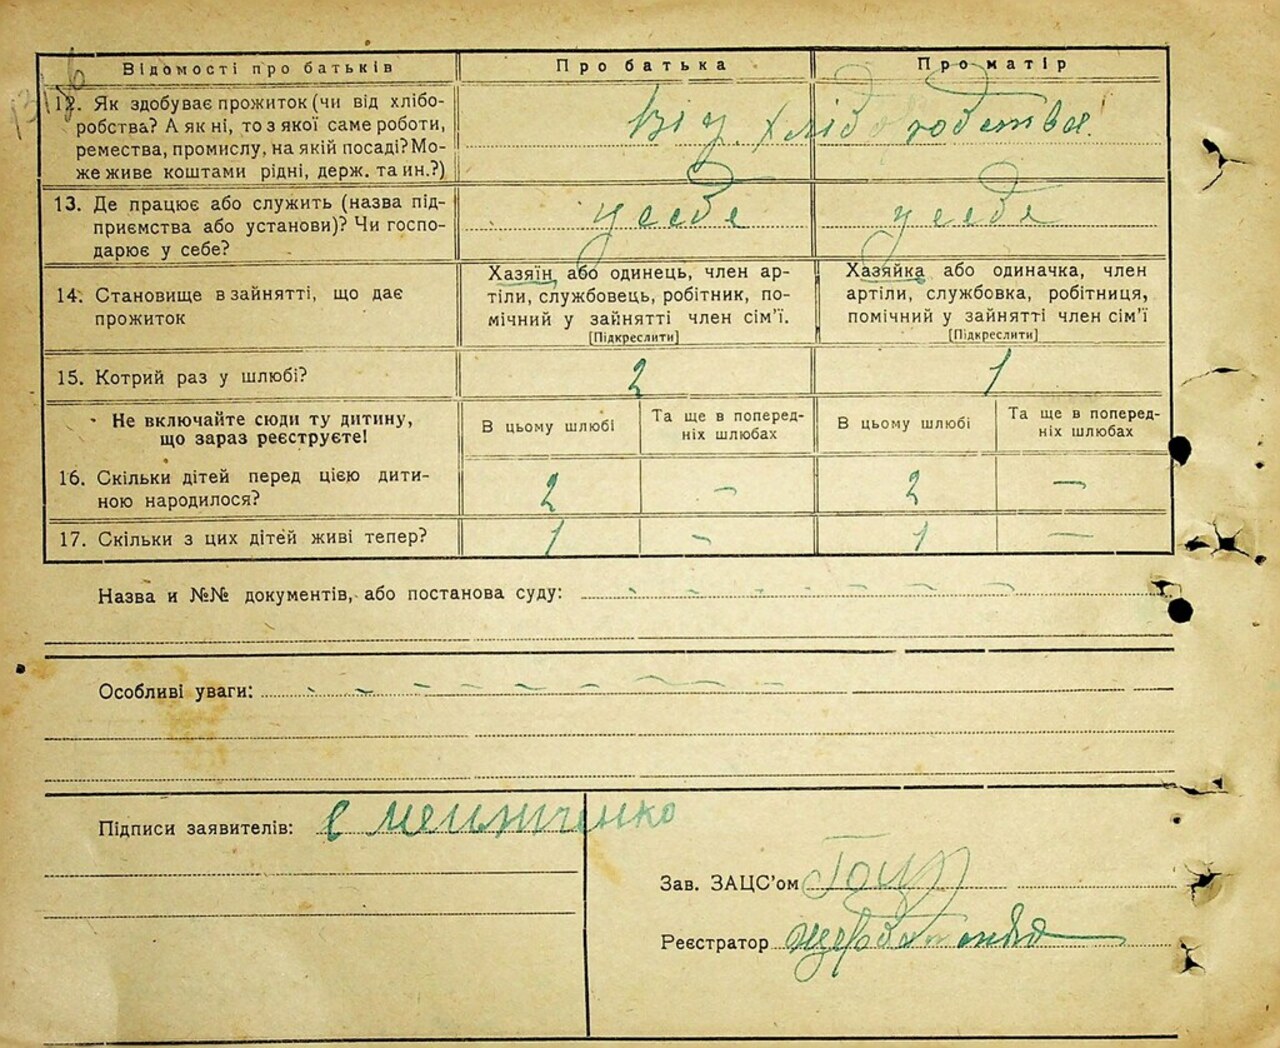 Відомості про батьків Про батька Про матір
12. Як здобуває прожиток (чи від хлібо-
робства? А як ні, то з якої саме роботи,
ремества, промислу, на якій посаді? Мо-
же живе коштами рідні, держ. та ин.?)
Від хліборобства.
13. Де працює або служить (назва під-
приємства або установи)? Чи госпо-
дарює у себе?
у себе у себе
14. Становище в зайнятті, що дає
прожиток
Хазяїн або одинець, член ар-
тіли, службовець, робітник, по-
мічний у зайнятті член сім'ї.
[Підкреслити]
Хазяйка або одиначка, член
артіли, службовка, робітниця,
помічний у зайнятті член сім'ї
[Підкреслити]
15. Котрий раз у шлюбі? 2 1
Не включайте сюди ту дитину,
що зараз реєструєте!
В цьому шлюбі
Та ще в поперед-
ніх шлюбах
В цьому шлюбі
Та ще в поперед-
ніх шлюбах
16. Скільки дітей перед цією дити-
ною народилося?
2 — 2 —
17. Скільки з цих дітей живі тепер? 1 — 1 —
Назва и №№ документів, або постанова суду: - - - - - - -
Особливі уваги: - - - - - - - -
Підписи заявителів:
Зав. ЗАЦС'ом
Реєстратор